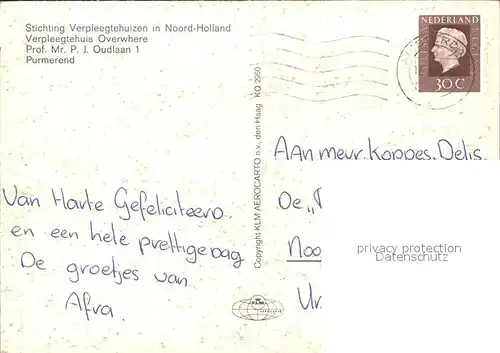 Stichting Verpleegtehuizen in Noord-Holland
Verpleegtehuis Overwhere
Prof. Mr. P. J. Oudlaan 1
Purmerend
NEDERLAND
30 C
Copyright KLM AEROCARTO n.v., den Haag KQ 2950
Aan mevr. Koppes. Delis.
De „
Noo
Ur
Van Harte Gefeliciteerd.
en een hele prettige dag
De groetjes van
Afra.
KLM
AEROCARTO
privacy protection
Datenschutz